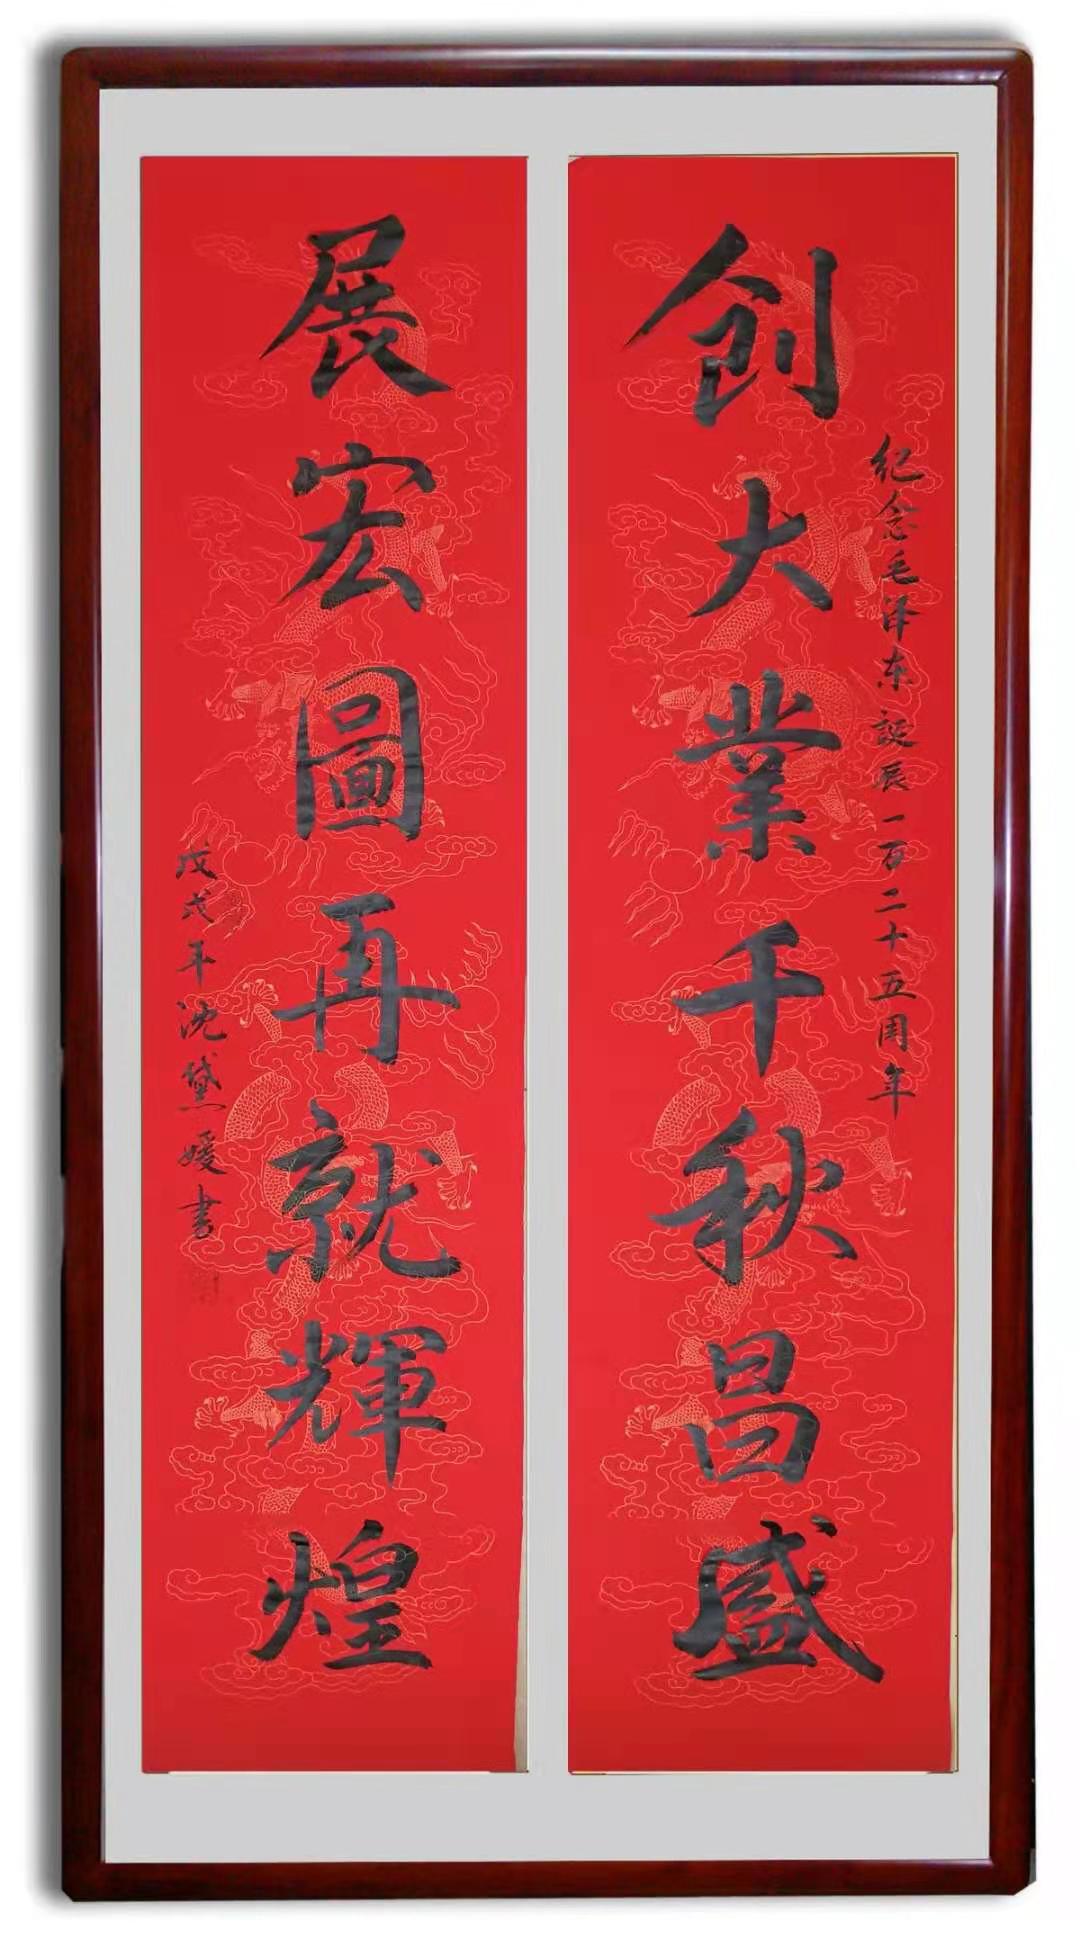 纪念毛泽东诞辰一百二十五周年
创大業千秋昌盛
展宏圖再就輝煌
戊戌年沈黛媛書